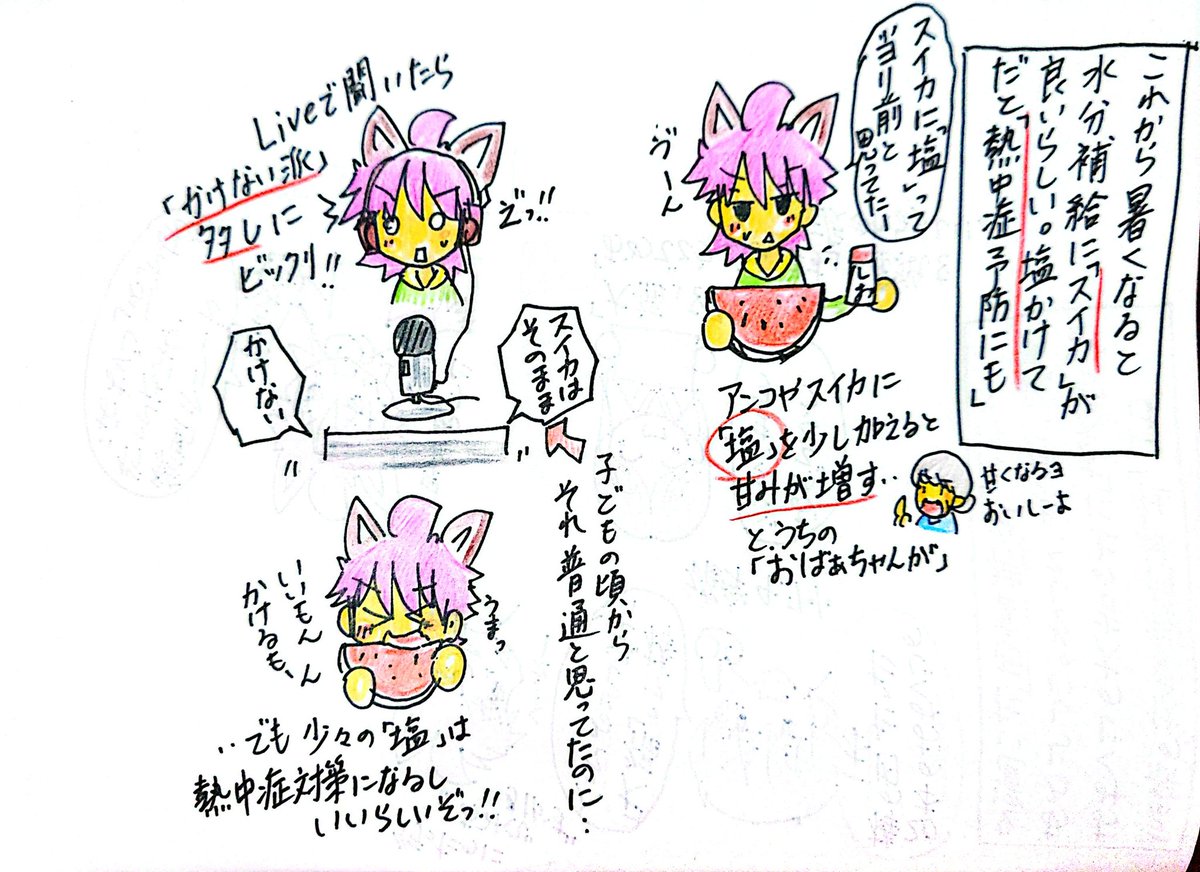 これから暑くなると
水分補給に「スイカ」が
良いらしい。塩かけて
だと「熱中症予防にも」
スイカに"塩"って
当り前と
思ってたー
ゔーん
しお
アンコやスイカに
「塩」を少し加えると
甘みが増す..
と、うちの
「おばぁちゃんが」
甘くなるヨ
おいしーよ
子どもの頃から
それ普通と思ってたのに..
Liveで聞いたら
「かけない派」
多しに
ビックリ!!
ぞっ!!
スイカは
そのまま
かけない
うまっ
いいもん
かけるも、ん
..でも少々の「塩」は
熱中症対策になるし
いいらしいぞっ!!